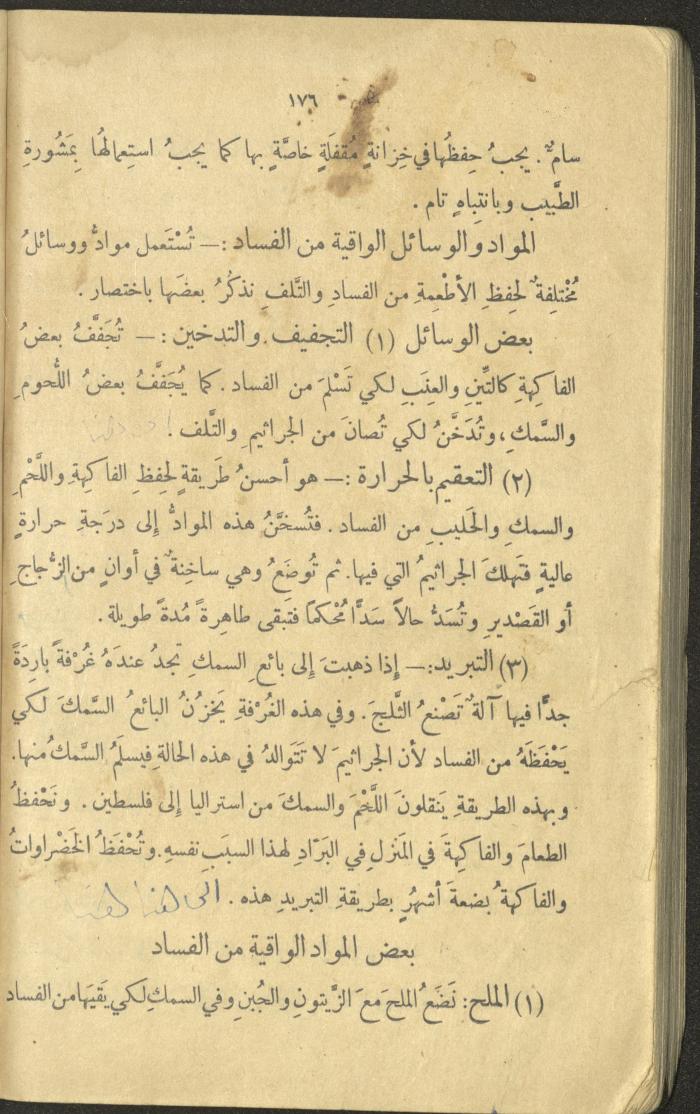 ١٧٦
سامٌّ . يجبُ حِفظُها في خِزانةٍ مُقفَلَةٍ خاصَّةٍ بها كما يجبُ استِعمالُها بِمَشُورةِ
الطَّبيب وبانتِباهٍ تام .
المواد والوسائل الواقية من الفساد :— تُسْتَعمل موادُّ ووسائلُ
مُخْتلِفةٌ لحِفظِ الأطْعِمةِ من الفسادِ والتَّلفِ نذكُرُ بعضَها باختصار .
بعض الوسائل (١) التجفيف . والتدخين : — تُجَفَّفُ بعضُ
الفاكِهةِ كالتِّينِ والعِنَبِ لكي تَسْلمَ من الفساد . كما يُجَفَّفُ بعضُ اللُّحومِ
والسَّمكِ ، وتُدَخَّنُ لكي تُصانَ من الجراثيمِ والتَّلف .
(٢) التعقيم بالحرارة :— هو أحسنُ طَريقةٍ لحِفظِ الفاكِهةِ واللَّحْمِ
والسمكِ والحَليبِ من الفساد . فتُسخَّنُ هذه الموادُّ إلى درَجةِ حرارةٍ
عاليةٍ فتَهلكَ الجراثيمُ التي فيها . ثم تُوضَعُ وهي ساخِنةٌ في أوانٍ من الزُّجاجِ
أو القَصْديرِ وتُسَدُّ حالاً سَدًّا مُحْكماً فتبقى طاهِرةً مُدةً طويلة .
(٣) التبريد :— إذا ذهبتَ إلى بائعِ السمكِ تجدُ عندَهُ غُرْفةً بارِدَةً
جدًّا فيها آلةٌ تَصْنعُ الثَّلجَ . وفي هذه الغُرْفةِ يَخزُنُ البائعُ السَّمكَ لكي
يَحْفَظَهُ من الفساد لأن الجراثيمَ لا تَتَوالدُ في هذه الحالةِ فيسلَمُ السَّمكُ منها .
وبهذه الطريقةِ يَنقلونَ اللَّحْمَ والسمكَ من استراليا إلى فلسطين . ونَحْفظُ
الطعامَ والفاكِهةَ في المَنزلِ في البَرّادِ لهذا السبَبِ نفسهِ . وتُحْفَظُ الخَضْراواتُ
والفاكهةُ بضعةَ أشهُرٍ بطريقةِ التبريدِ هذه . الى هنا
بعض المواد الواقية من الفساد
(١) الملح : نَضَعُ الملحَ معَ الزَّيتونِ والجُبنِ وفي السمكِ لكي يَقيَها من الفساد